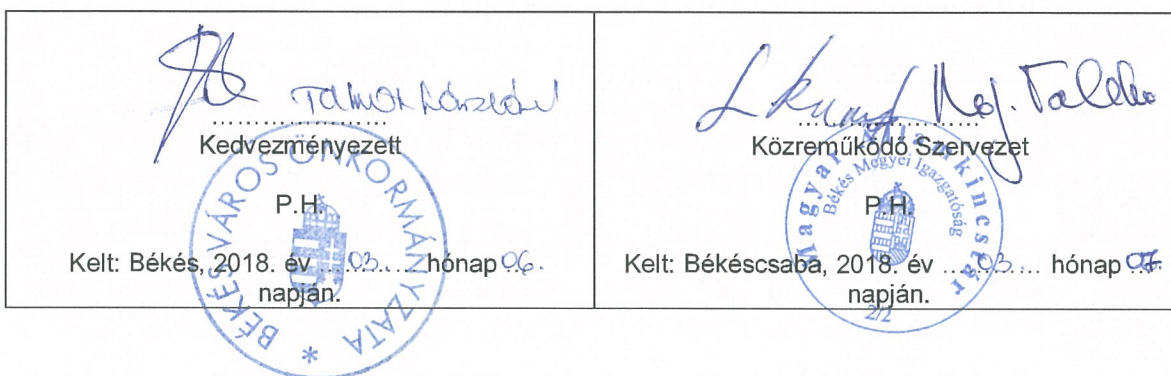 Kedvezményezett
P.H.
Kelt: Békés, 2018. év ....03..... hónap 06.
napján.
BÉKÉS VÁROS ÖNKORMÁNYZATA *
Közreműködő Szervezet
P.H.
Kelt: Békéscsaba, 2018. év ....03..... hónap 07.
napján.
Magyar Államkincstár
Békés Megyei Igazgatóság
2/2